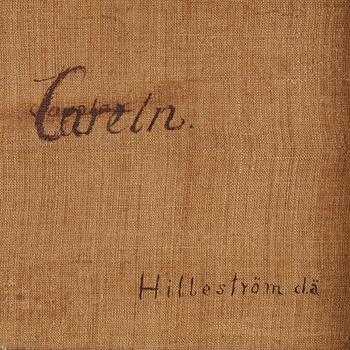 Careln.
Hilleström d.ä